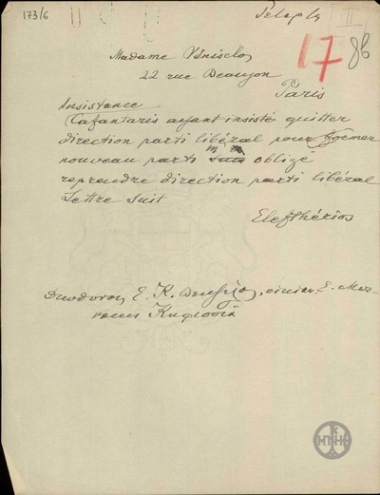 173/6
17 86
Madame Véniselos
22 rue Beaujon
Paris
Insistance
Cafantaris ayant insisté quitter
direction parti libéral pour former
nouveau parti m'a obligé
reprendre direction parti libéral
Lettre suit
Elefthérios
Διεύθυνσις Ε. Κ. Βενιζέλος, οικία
Κηφισσιά